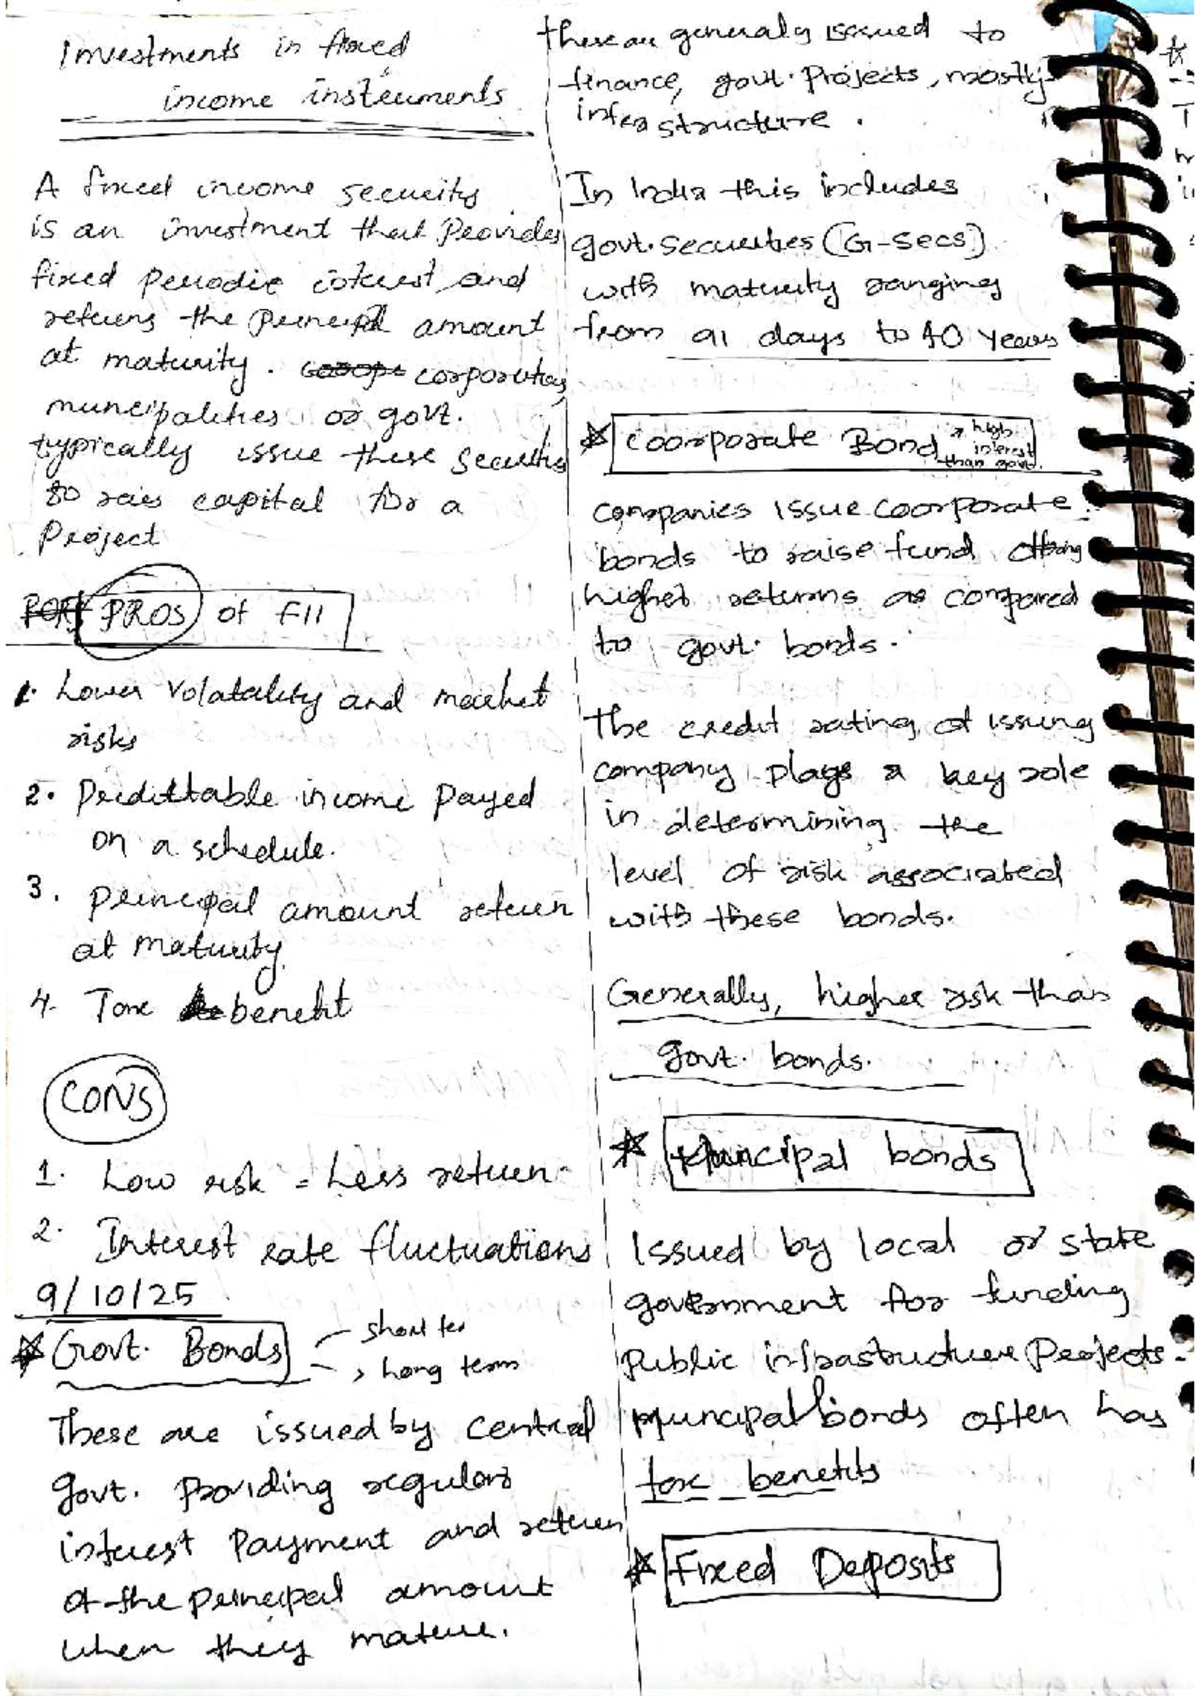 Investments in fixed
income instruments
A fixed income security
is an investment that Provides
fixed periodic interest, and
returns the principal amount
at maturity. corporaties,
muncipalities or govt.
typically issue these securities
to raies capital for a
Project
PROS of FII
1. Lower Volatality and market
risks
2. Prdittable income payed
on a schedule.
3. principal amount return
at maturity.
4. Tax benefit
CONS
1. Low risk = Less return
2. Interest rate fluctuations
9/10/25
Govt. Bonds
short ter
Long term
These are issued by central
govt. providing regular
interest Payment and return
of the principal amount
when they mature.
these are generaly issued to
finance, govt. Projects, mostly
infrastructure.
In India this includes
govt. securities (G-secs)
with maturity ranging
from 91 days to 40 years
Coorporate Bond
high
interest
than govt.
companies issue coorporate
bonds to raise fund
higher returns as compared
to govt. bonds.
The credit rating of issung
company plays a key role
in determining the
level of risk associated
with these bonds.
Generally, higher risk than
govt. bonds.
Muncipal bonds
Issued by local or state
government for funding
Public infrastructure Projects.
Muncipal bonds often has
tax benefits
Fixed Deposits